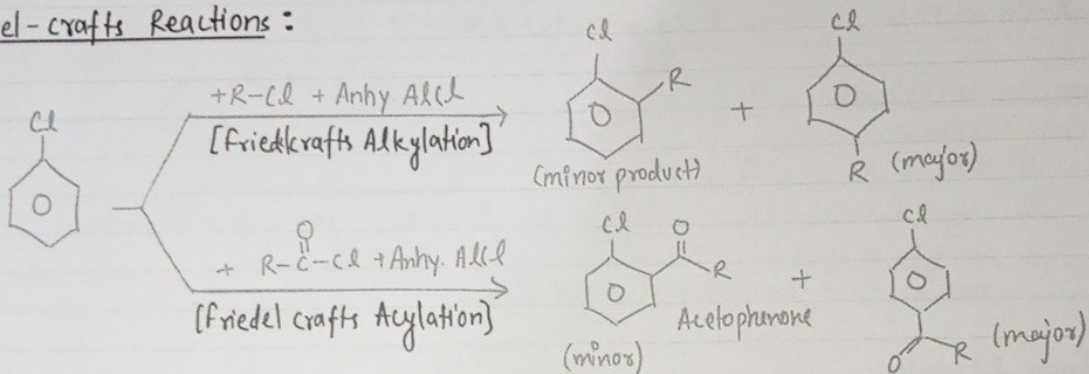 el-crafts Reactions :
Cl
+R-Cl + Anhy. AlCl
[Friedkrafts Alkylation]
Cl
R
(minor product)
+
Cl
R (major)
O
+ R-C-Cl + Anhy. AlCl
[Friedel crafts Acylation]
Cl
O
R
Acetophenone
(minor)
+
Cl
O
R (major)